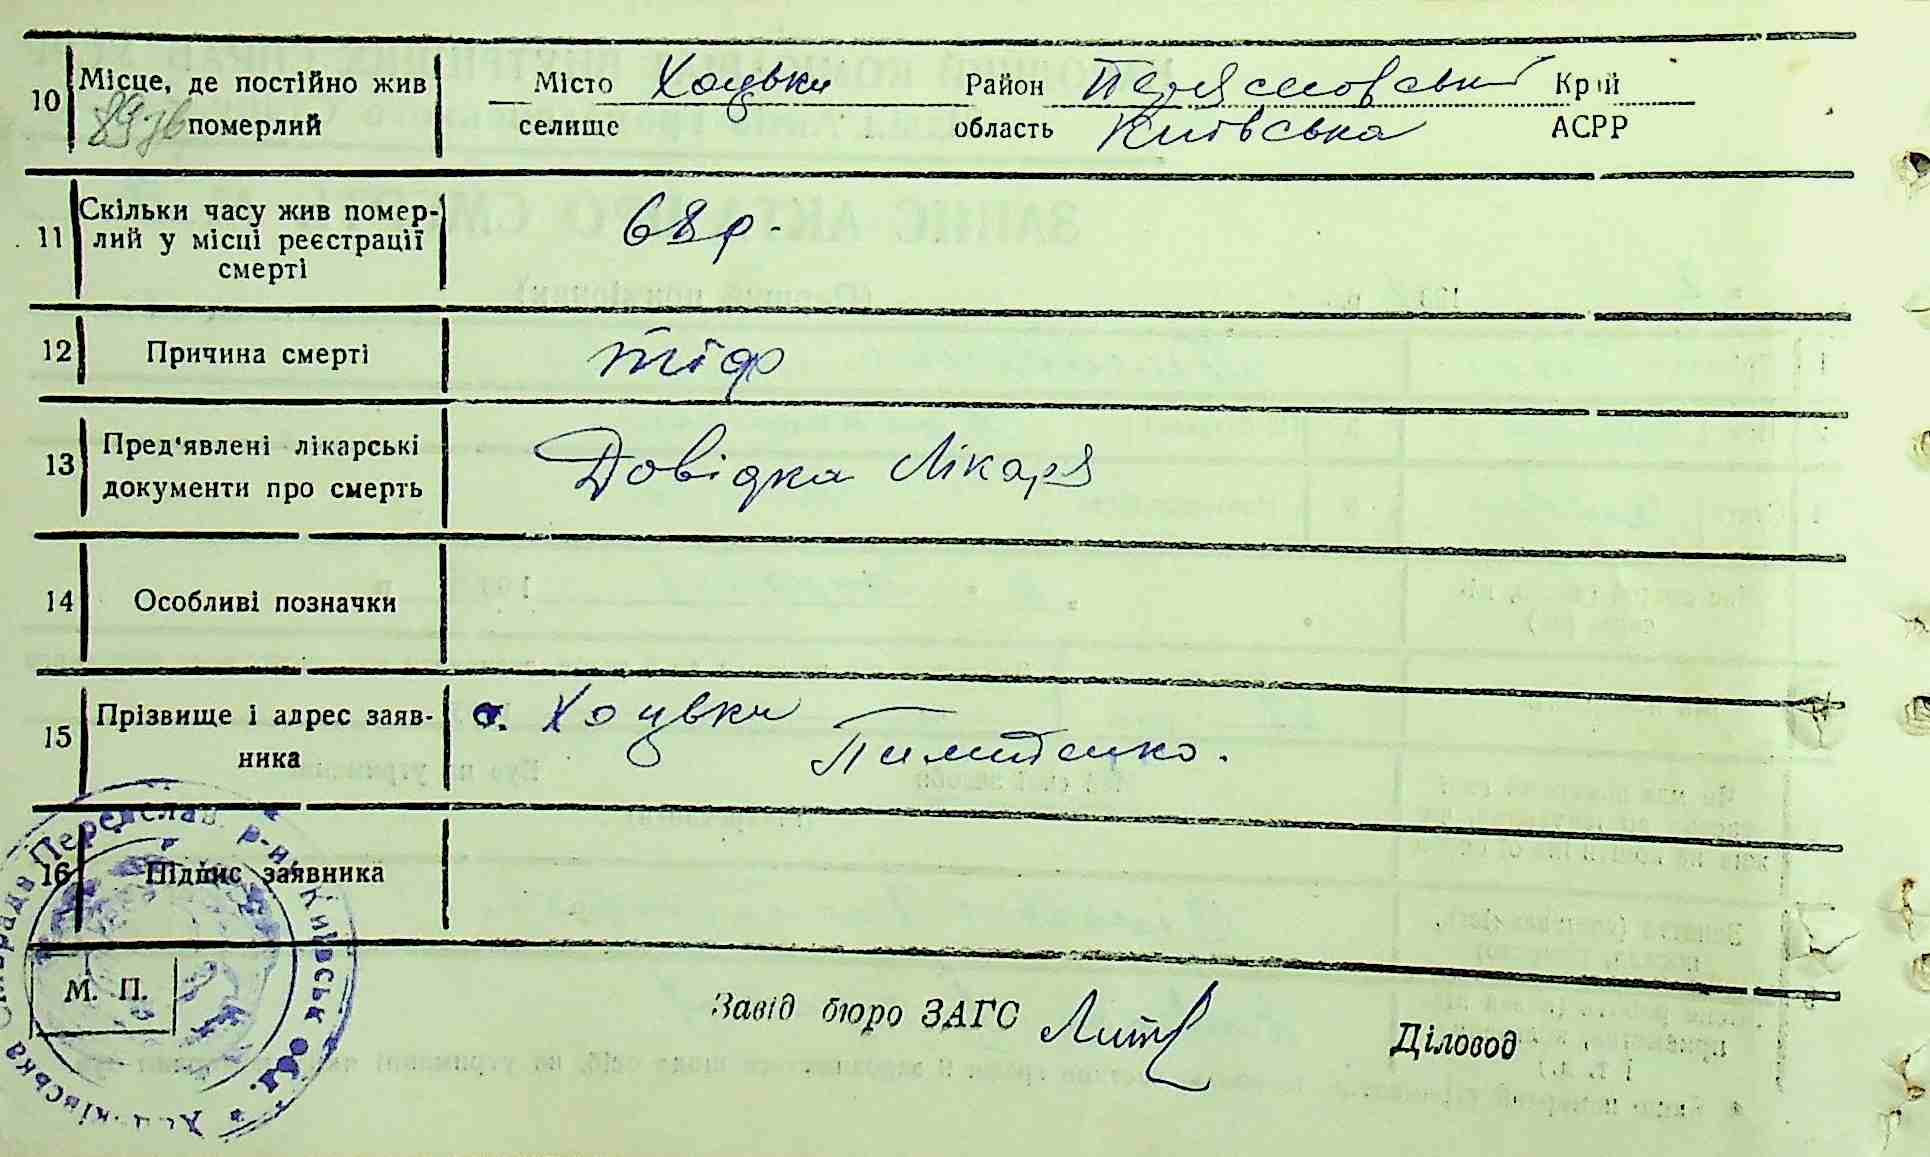 10 Місце, де постійно жив Місто Хоцьки Район Переяславський Край
померлий селище область Київська АСРР
11 Скільки часу жив помер-
лий у місці реєстрації 68 р.
смерті
12 Причина смерті тіф
13 Пред'явлені лікарські
документи про смерть Довідка лікаря
14 Особливі позначки
15 Прізвище і адрес заяв- с. Хоцьки
ника Пилипенко.
16 Підпис заявника
М. П.
Завід бюро ЗАГС
Діловод
Сільрада Переяслав. р-н. Київськ обл.